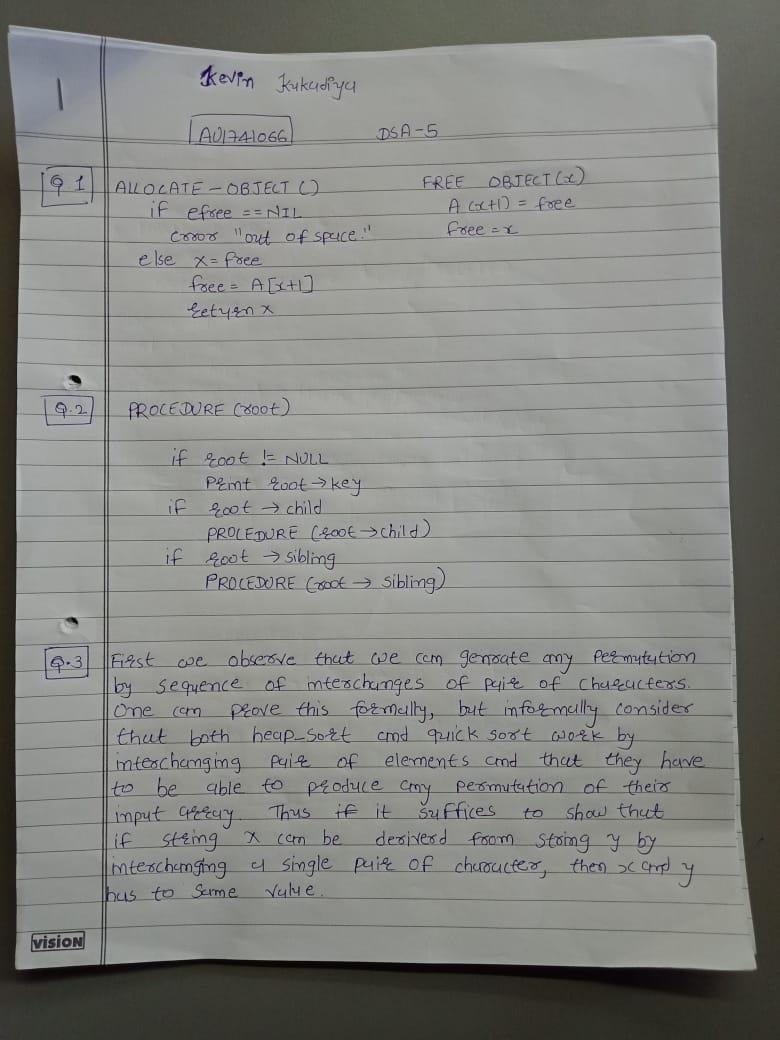 1
Kevin Kukadiya
AU1741066 DSA-5
Q 1 ALLOCATE - OBJECT () FREE OBJECT (x)
if efree == NIL A (x+1) = free
error "out of space." free = x
else x = free
free = A[x+1]
return x
Q.2 PROCEDURE (root)
if root != NULL
Print root → key
if root → child
PROCEDURE (root → child)
if root → sibling
PROCEDURE (root → sibling)
Q.3 First we observe that we can genrate any permutation
by sequence of interchanges of pair of characters.
One can prove this formally, but informally consider
that both heap-sort and quick sort work by
interchanging pair of elements and that they have
to be able to produce any permutation of their
input array. Thus if it suffices to show that
if string x can be deriverd from string y by
interchanging a single pair of character, then x and y
has to same value.
VISION